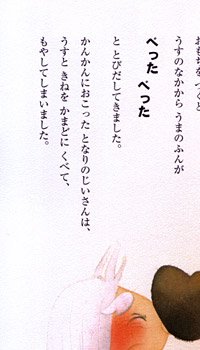 おもちを つくと
うすのなかから うまのふんが
べった べった
と とびだしてきました。
かんかんにおこった となりのじいさんは、
うすと きねを かまどに くべて、
もやしてしまいました。